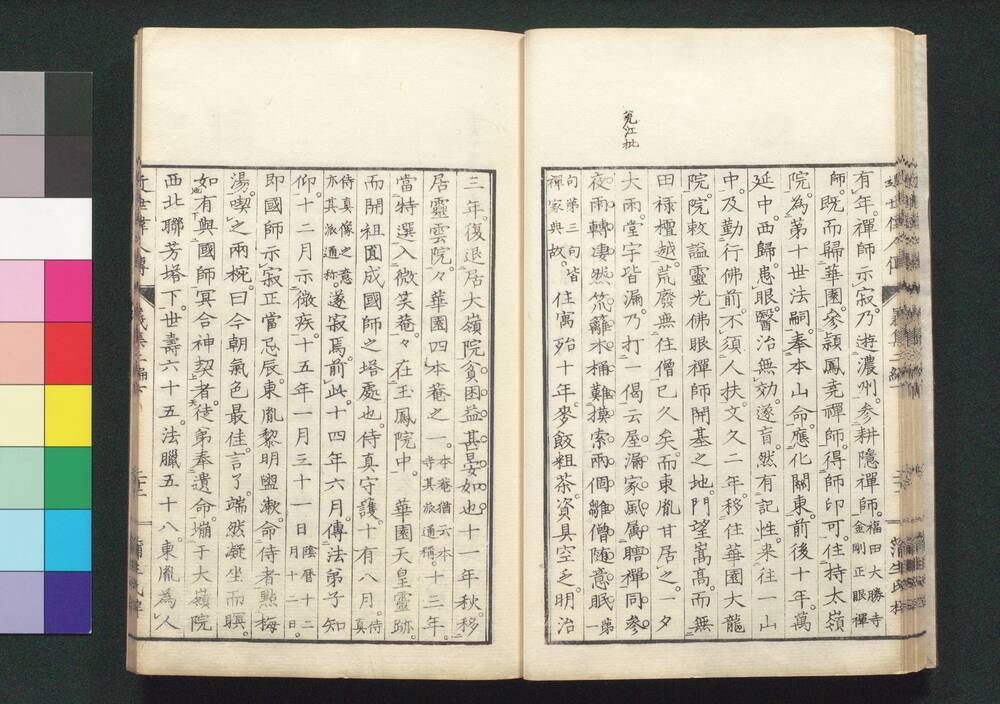 有年禪師示寂。乃游濃州。参耕隱禪師。福田大勝寺金剛正眼禪
師。既而歸華園。参頴鳳堯禪師。得師印可。住持大嶺
院。為第十世法嗣。奉本山命。應化關東。前後十年。萬
延中。西歸。患眼。醫治無効。遂盲。然有記性。来往一山
中。及勤行佛前。不須人扶。文久二年。移住華園大龍
院。院敕謚靈光佛眼禪師開基之地。門望嵩高。而無
田祿檀越。荒廢無住僧已久矣。而東胤甘居之。一夕
大雨。堂宇皆漏。乃打一偈云屋漏家風屬瞎禪同参
夜雨轉凄然笊籬木杓難摸索兩個雛僧随意眠第一
句第三句皆禪家典故。住寓殆十年。麥飯粗茶。資具空乏。明治
三年。復退居大嶺院。貧困益甚。晏如也。十一年秋。移
居靈雲院。々華園四本菴之一。本菴猶云本寺其派通稱。十三年。
當特選入微笑菴。々在玉鳳院中。華園天皇靈跡。
而開祖圓成國師之塔處也。侍真守護。十有八月。侍真
侍真像之意亦其派通称。遂寂焉。前此十四年六月。傳法弟子知
仰。十二月示微疾。十五年一月三十一日陰暦十二月十二日。
即國師示寂正當忌辰。東胤黎明盥漱。命侍者點梅
湯。喫之兩椀。曰今朝氣色最佳。言了。端然凝坐而瞑。
如有與國師冥合神契者。徒弟奉遺命。堋于大嶺院
西北聯芳塔下。世壽六十五。法臘五十八。東胤為人